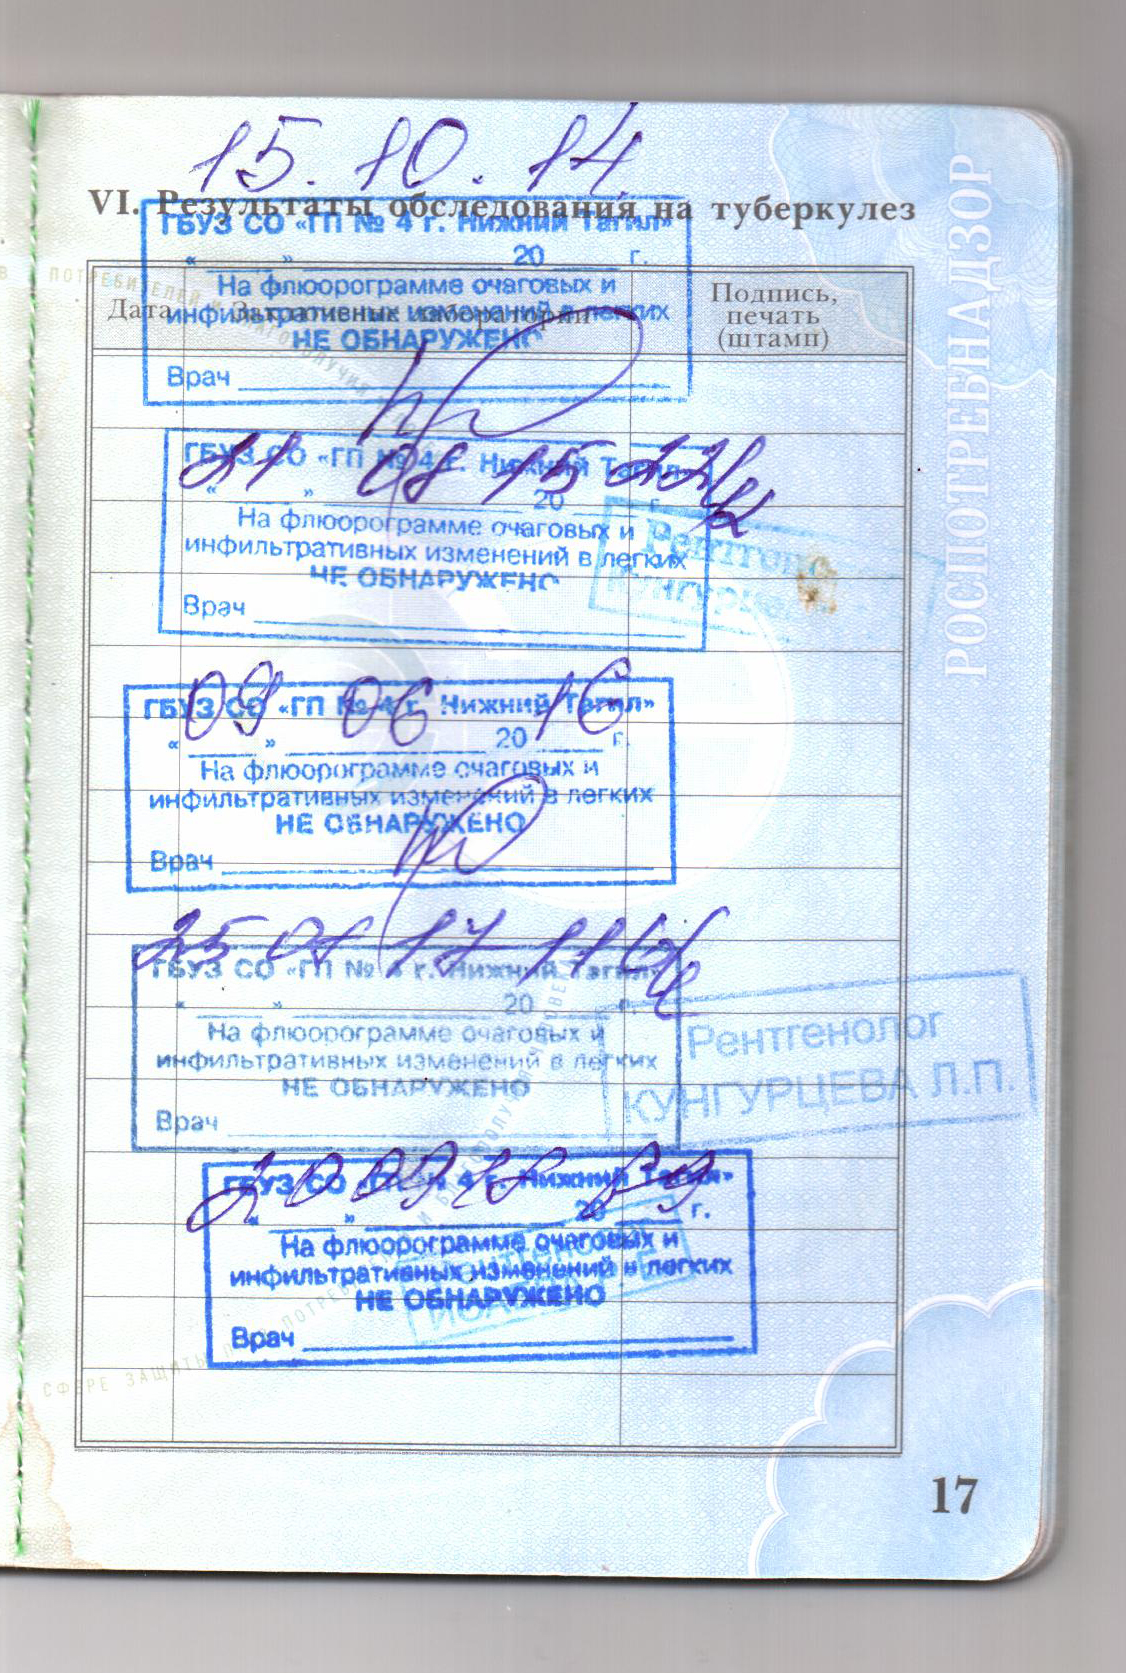 15.10.14
VI. Результаты обследования на туберкулез
ГБУЗ СО «ГП № 4 г. Нижний Тагил»
« » 20 г.
На флюорограмме очаговых и
инфильтративных изменений в легких
НЕ ОБНАРУЖЕНО
Врач
Дата
Подпись,
печать
(штамп)
21 08 15
ГБУЗ СО «ГП № 4 г. Нижний Тагил»
« » 20 г.
На флюорограмме очаговых и
инфильтративных изменений в легких
НЕ ОБНАРУЖЕНО
Врач
09 06 16
ГБУЗ СО «ГП № 4 г. Нижний Тагил»
« » 20 г.
На флюорограмме очаговых и
инфильтративных изменений в легких
НЕ ОБНАРУЖЕНО
Врач
ГБУЗ СО «ГП № 4 г. Нижний Тагил»
« » 20 г.
На флюорограмме очаговых и
инфильтративных изменений в легких
НЕ ОБНАРУЖЕНО
Врач
Рентгенолог
КУНГУРЦЕВА Л.П.
ГБУЗ СО «ГП № 4 г. Нижний Тагил»
« » 20 г.
На флюорограмме очаговых и
инфильтративных изменений в легких
НЕ ОБНАРУЖЕНО
Врач
РОСПОТРЕБНАДЗОР
17